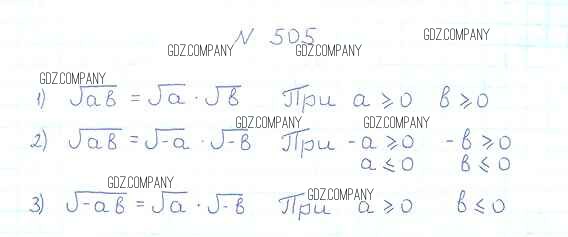 N 505
GDZ.COMPANY GDZ.COMPANY GDZ.COMPANY
GDZ.COMPANY
1) √ab = √a · √b При a ≥ 0 b ≥ 0
GDZ.COMPANY GDZ.COMPANY
2) √ab = √-a · √-b При -a ≥ 0 -b ≥ 0
a ≤ 0 b ≤ 0
GDZ.COMPANY GDZ.COMPANY
3) √-ab = √a · √-b При a ≥ 0 b ≤ 0